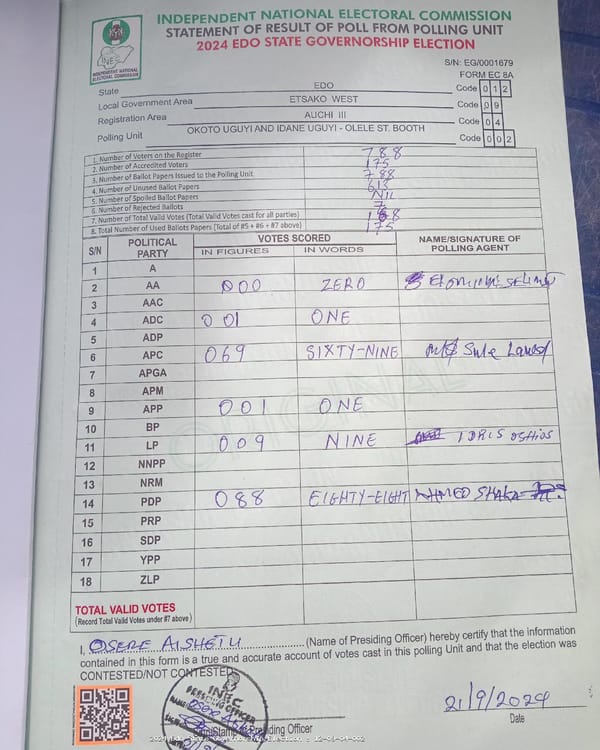 INDEPENDENT NATIONAL ELECTORAL COMMISSION
STATEMENT OF RESULT OF POLL FROM POLLING UNIT
2024 EDO STATE GOVERNORSHIP ELECTION
INEC
INDEPENDENT NATIONAL ELECTORAL COMMISSION
S/N: EG/0001679
FORM EC 8A
State EDO Code 0 1 2
Local Government Area ETSAKO WEST Code 0 9
Registration Area AUCHI III Code 0 4
Polling Unit OKOTO UGUYI AND IDANE UGUYI - OLELE ST. BOOTH Code 0 0 2
1. Number of Voters on the Register 788
2. Number of Accredited Voters 175
3. Number of Ballot Papers Issued to the Polling Unit 788
4. Number of Unused Ballot Papers 613
5. Number of Spoiled Ballot Papers NIL
6. Number of Rejected Ballots 7
7. Number of Total Valid Votes (Total Valid Votes cast for all parties) 168
8. Total Number of Used Ballots Papers (Total of #5 + #6 + #7 above) 175
S/N POLITICAL PARTY VOTES SCORED NAME/SIGNATURE OF POLLING AGENT
IN FIGURES IN WORDS
1 A
2 AA 000 ZERO
3 AAC
4 ADC 001 ONE
5 ADP
6 APC 069 SIXTY-NINE Sule
7 APGA
8 APM
9 APP 001 ONE
10 BP
11 LP 009 NINE IDRIS
12 NNPP
13 NRM
14 PDP 088 EIGHTY-EIGHT
15 PRP
16 SDP
17 YPP
18 ZLP
TOTAL VALID VOTES
(Record Total Valid Votes under #7 above)
ORIGINAL
I, OSERE AISHETU (Name of Presiding Officer) hereby certify that the information
contained in this form is a true and accurate account of votes cast in this polling Unit and that the election was
CONTESTED/NOT CONTESTED
INEC
PRESIDING OFFICER
Presiding Officer
21/9/2024
Date